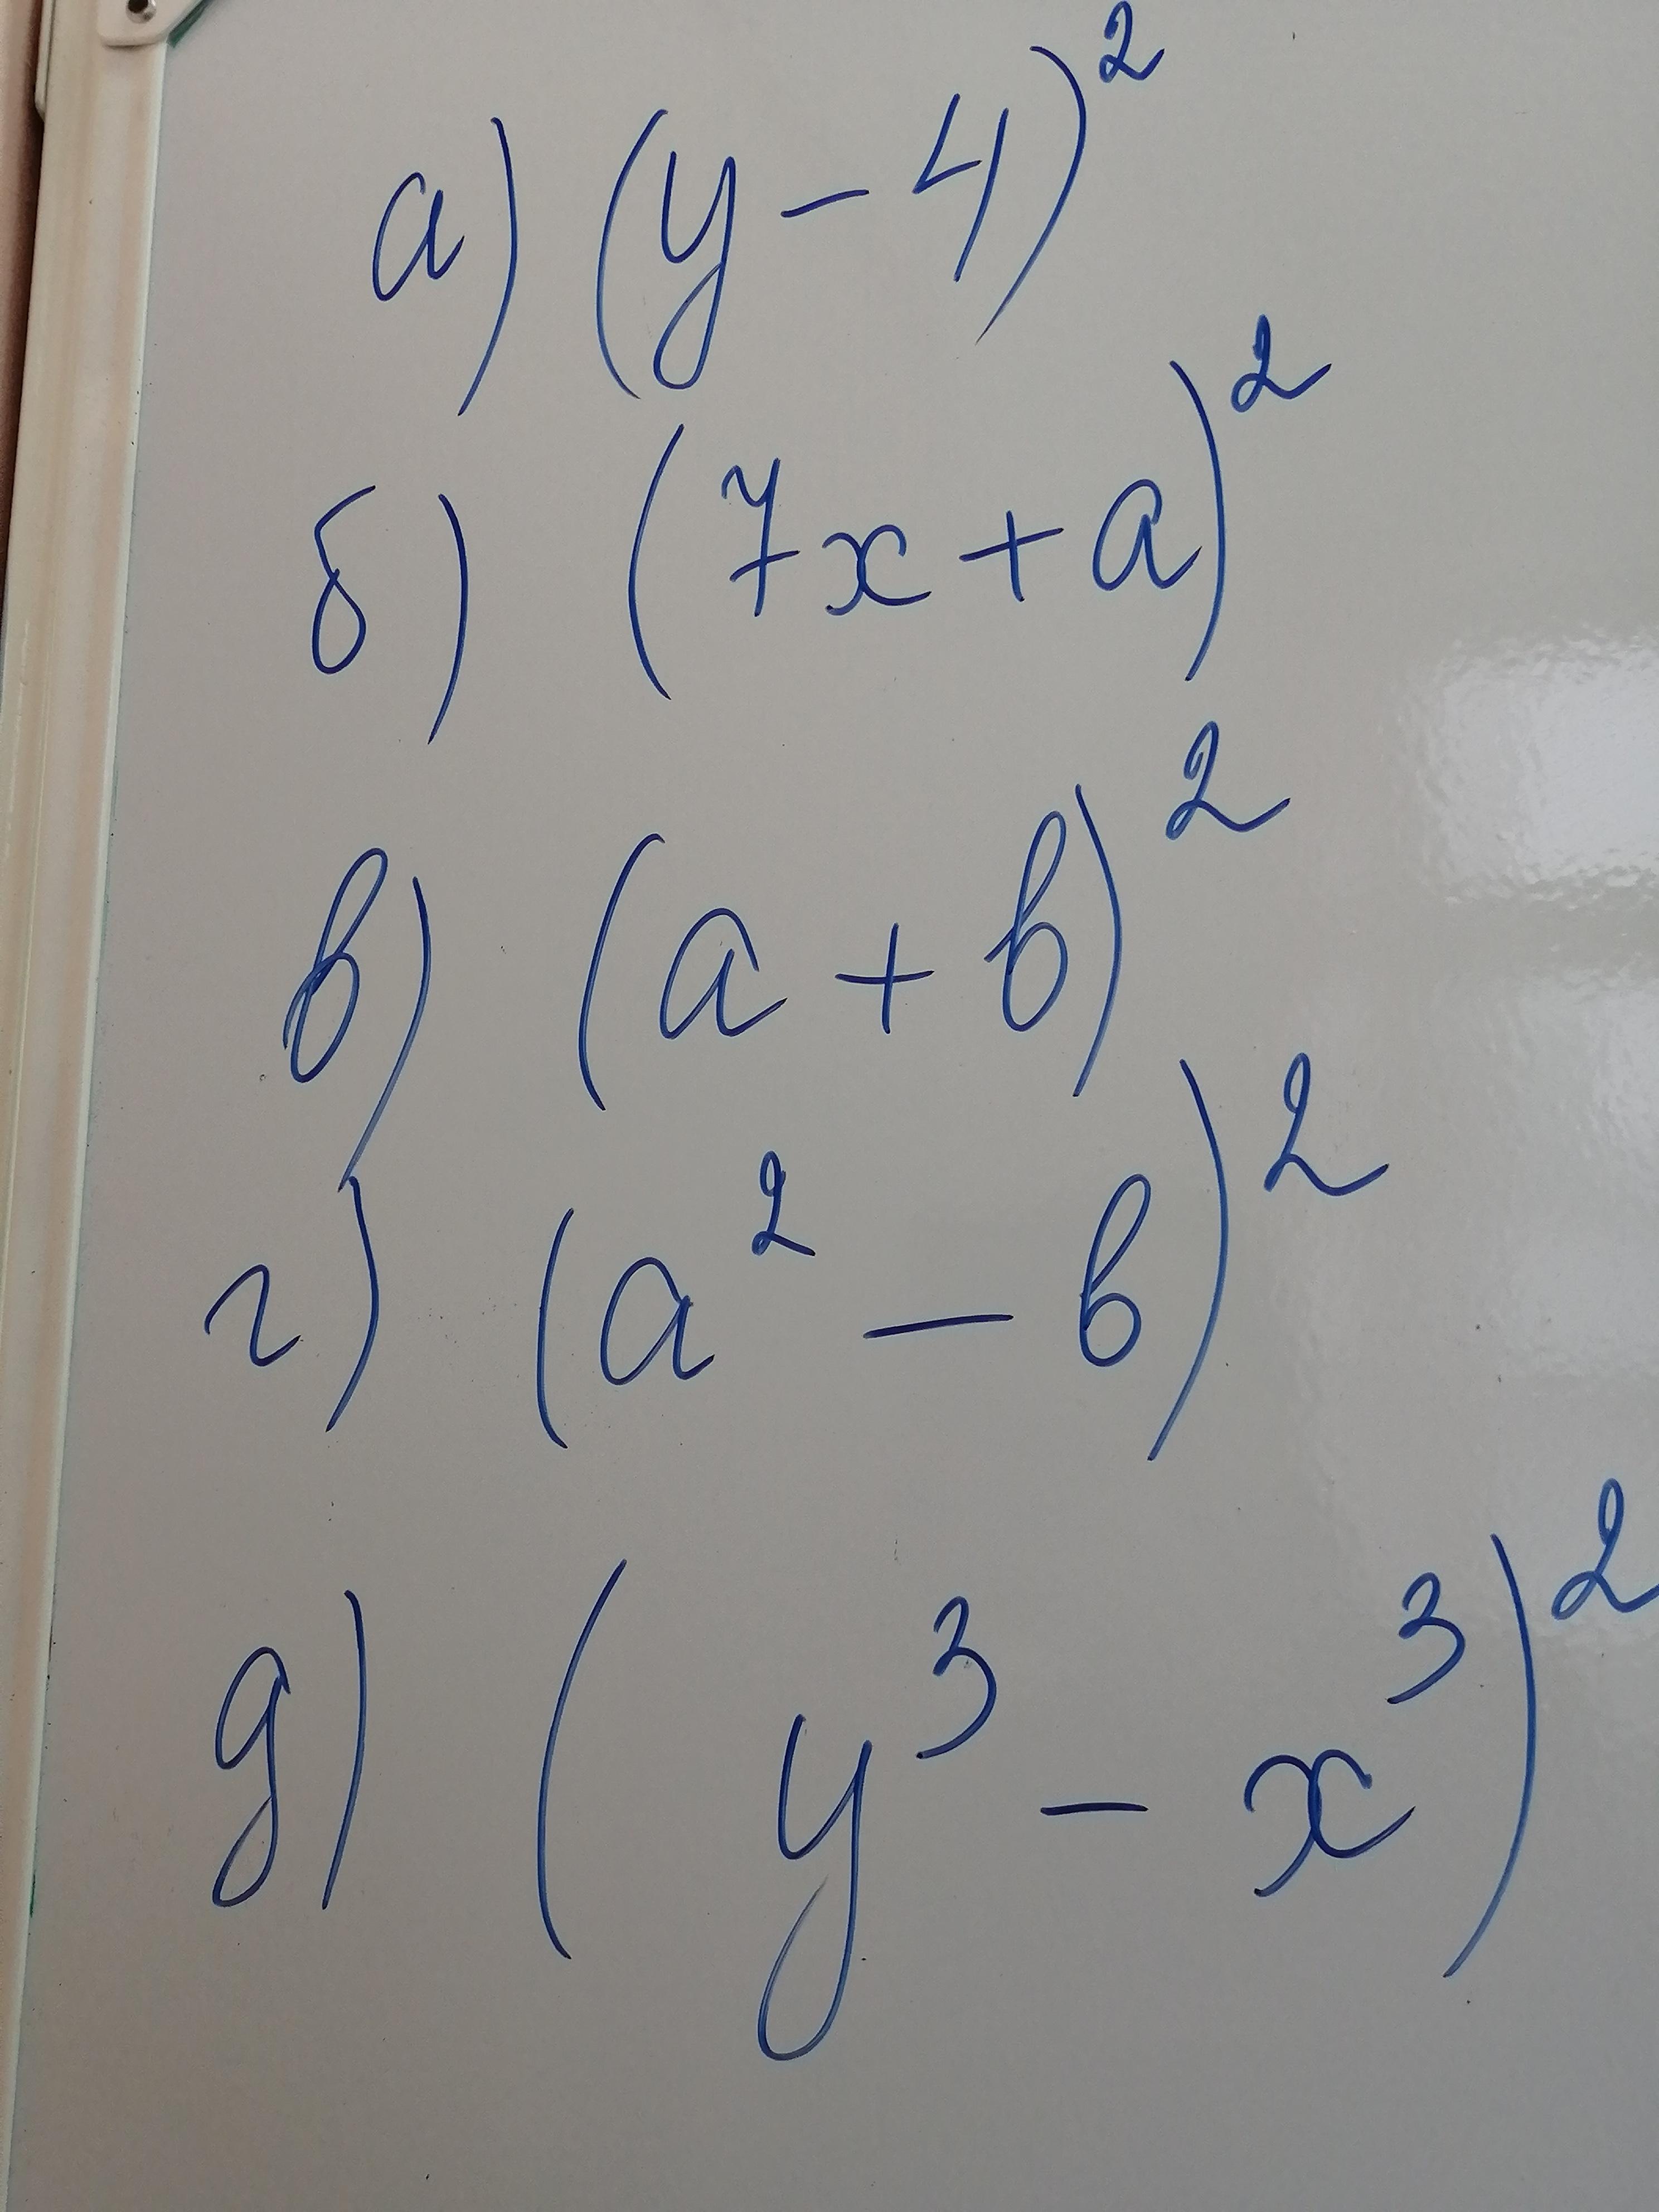 а) (y - 4)²
б) (7x + a)²
в) (a + b)²
г) (a² - b)²
д) (y³ - x³)²